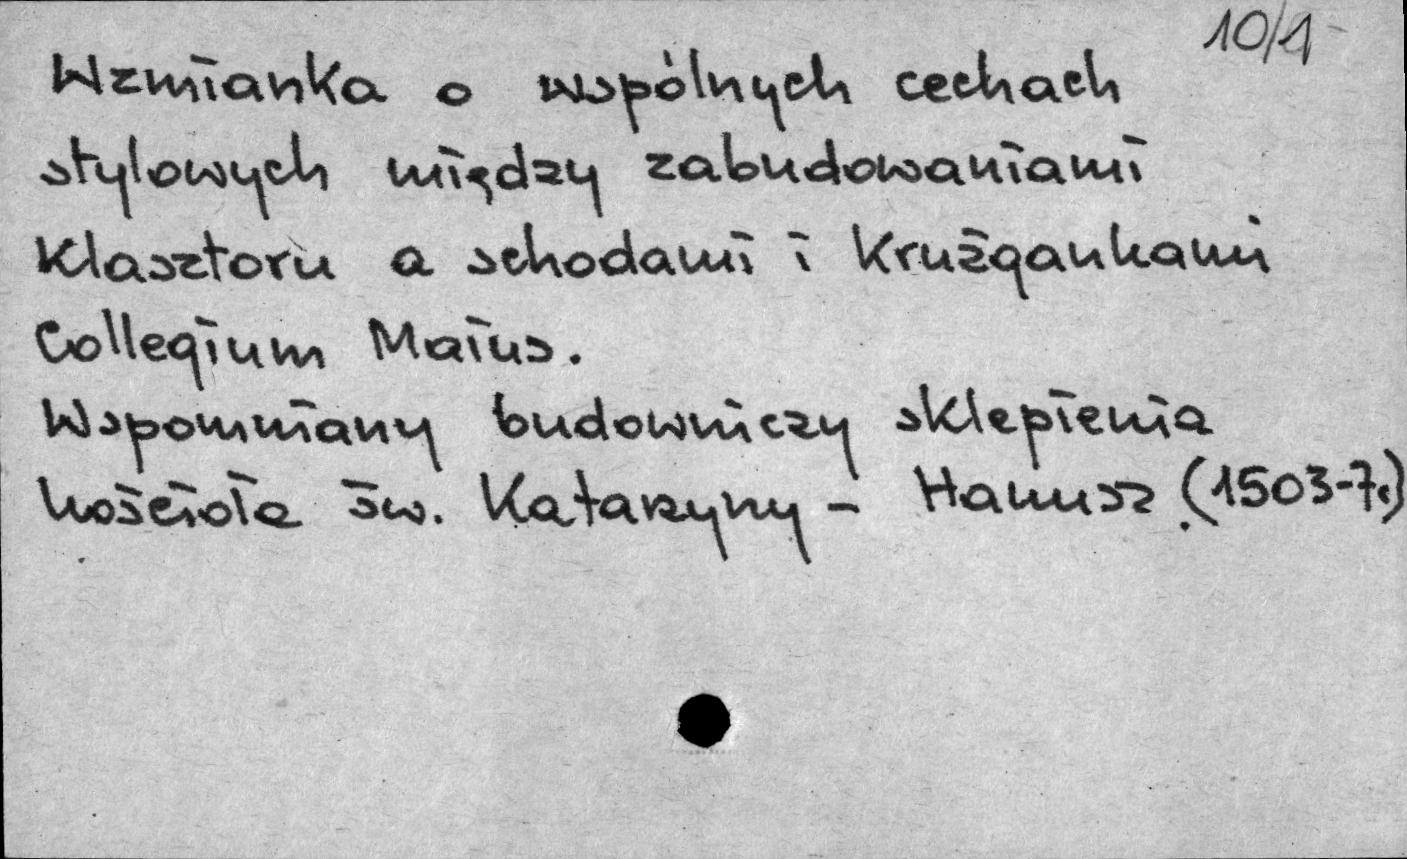 10/1
Wzmianka o wspólnych cechach
stylowych między zabudowaniami
klasztoru a schodami i krużgankami
Collegium Maius.
Wspomniany budowniczy sklepienia
kościoła św. Katarzyny - Hanusz (1503-7r.)